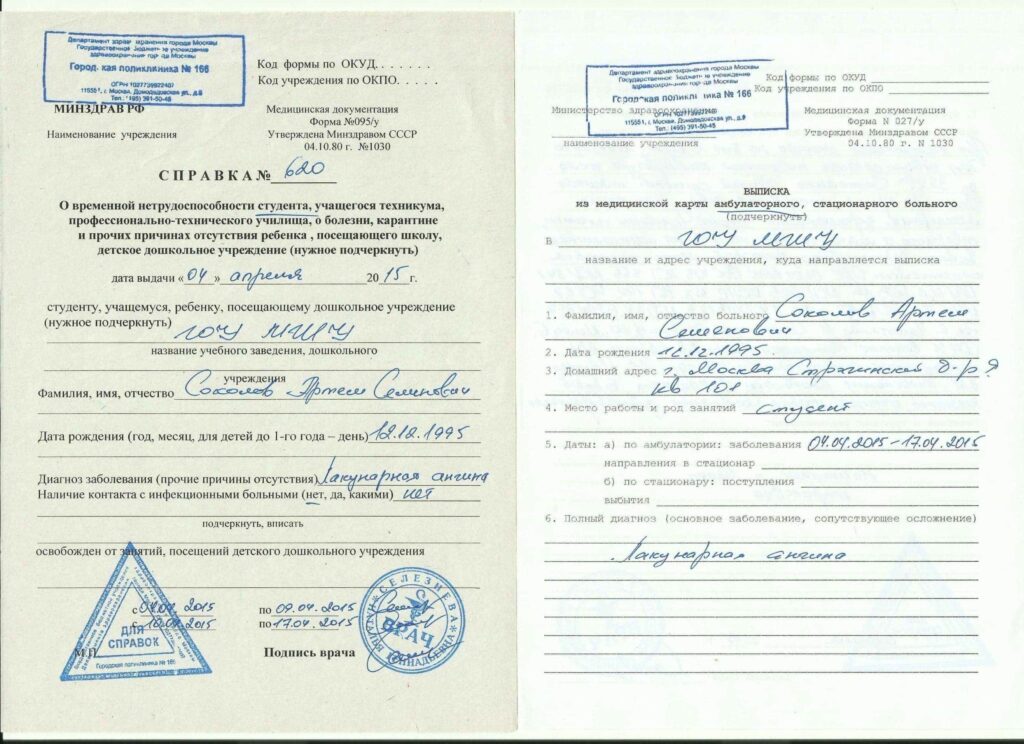 Департамент здравоохранения города Москвы
Государственное бюджетное учреждение
здравоохранения города Москвы
Городская поликлиника № 166
ОГРН 1027739922407
115551, г. Москва, Домодедовская ул., д.9
Тел.: (495) 391-50-45
Код формы по ОКУД. . . . . . .
Код учреждения по ОКПО. . . . .
МИНЗДРАВ РФ
Наименование учреждения
Медицинская документация
Форма №095/у
Утверждена Минздравом СССР
04.10.80 г. №1030
СПРАВКА№ 620
О временной нетрудоспособности студента, учащегося техникума,
профессионально-технического училища, о болезни, карантине
и прочих причинах отсутствия ребенка , посещающего школу,
детское дошкольное учреждение (нужное подчеркнуть)
дата выдачи «04» апреля 2015 г.
студенту, учащемуся, ребенку, посещающему дошкольное учреждение
(нужное подчеркнуть) ГОУ МГИУ
название учебного заведения, дошкольного
учреждения
Фамилия, имя, отчество Соколов Артем Семенович
Дата рождения (год, месяц, для детей до 1-го года – день) 12.12.1995
Диагноз заболевания (прочие причины отсутствия) Лакунарная ангина
Наличие контакта с инфекционными больными (нет, да, какими) нет
подчеркнуть, вписать
освобожден от занятий, посещений детского дошкольного учреждения
с 04.04.2015 по 09.04.2015
с 10.04.2015 по 17.04.2015
М.П.
Подпись врача
ДЛЯ
СПРАВОК
Городская поликлиника № 166
СЕЛЕЗНЕВА
НАТАЛЬЯ ГЕННАДЬЕВНА
ВРАЧ
Департамент здравоохранения города Москвы
Государственное бюджетное учреждение
здравоохранения города Москвы
Городская поликлиника № 166
115551, г. Москва, Домодедовская ул., д.9
Тел.: (495) 391-50-45
Код формы по ОКУД
Код учреждения по ОКПО
Министерство здравоохранения
наименование учреждения
Медицинская документация
Форма N 027/у
Утверждена Минздравом СССР
04.10.80 г. N 1030
ВЫПИСКА
из медицинской карты амбулаторного, стационарного больного
(подчеркнуть)
В ГОУ МГИУ
название и адрес учреждения, куда направляется выписка
1. Фамилия, имя, отчество больного Соколов Артем
Семенович
2. Дата рождения 12.12.1995.
3. Домашний адрес г. Москва Строгинский б-р 7
кв 101
4. Место работы и род занятий студент
5. Даты: а) по амбулатории: заболевания 04.04.2015-17.04.2015
направления в стационар
б) по стационару: поступления
выбытия
6. Полный диагноз (основное заболевание, сопутствующее осложнение)
Лакунарная ангина